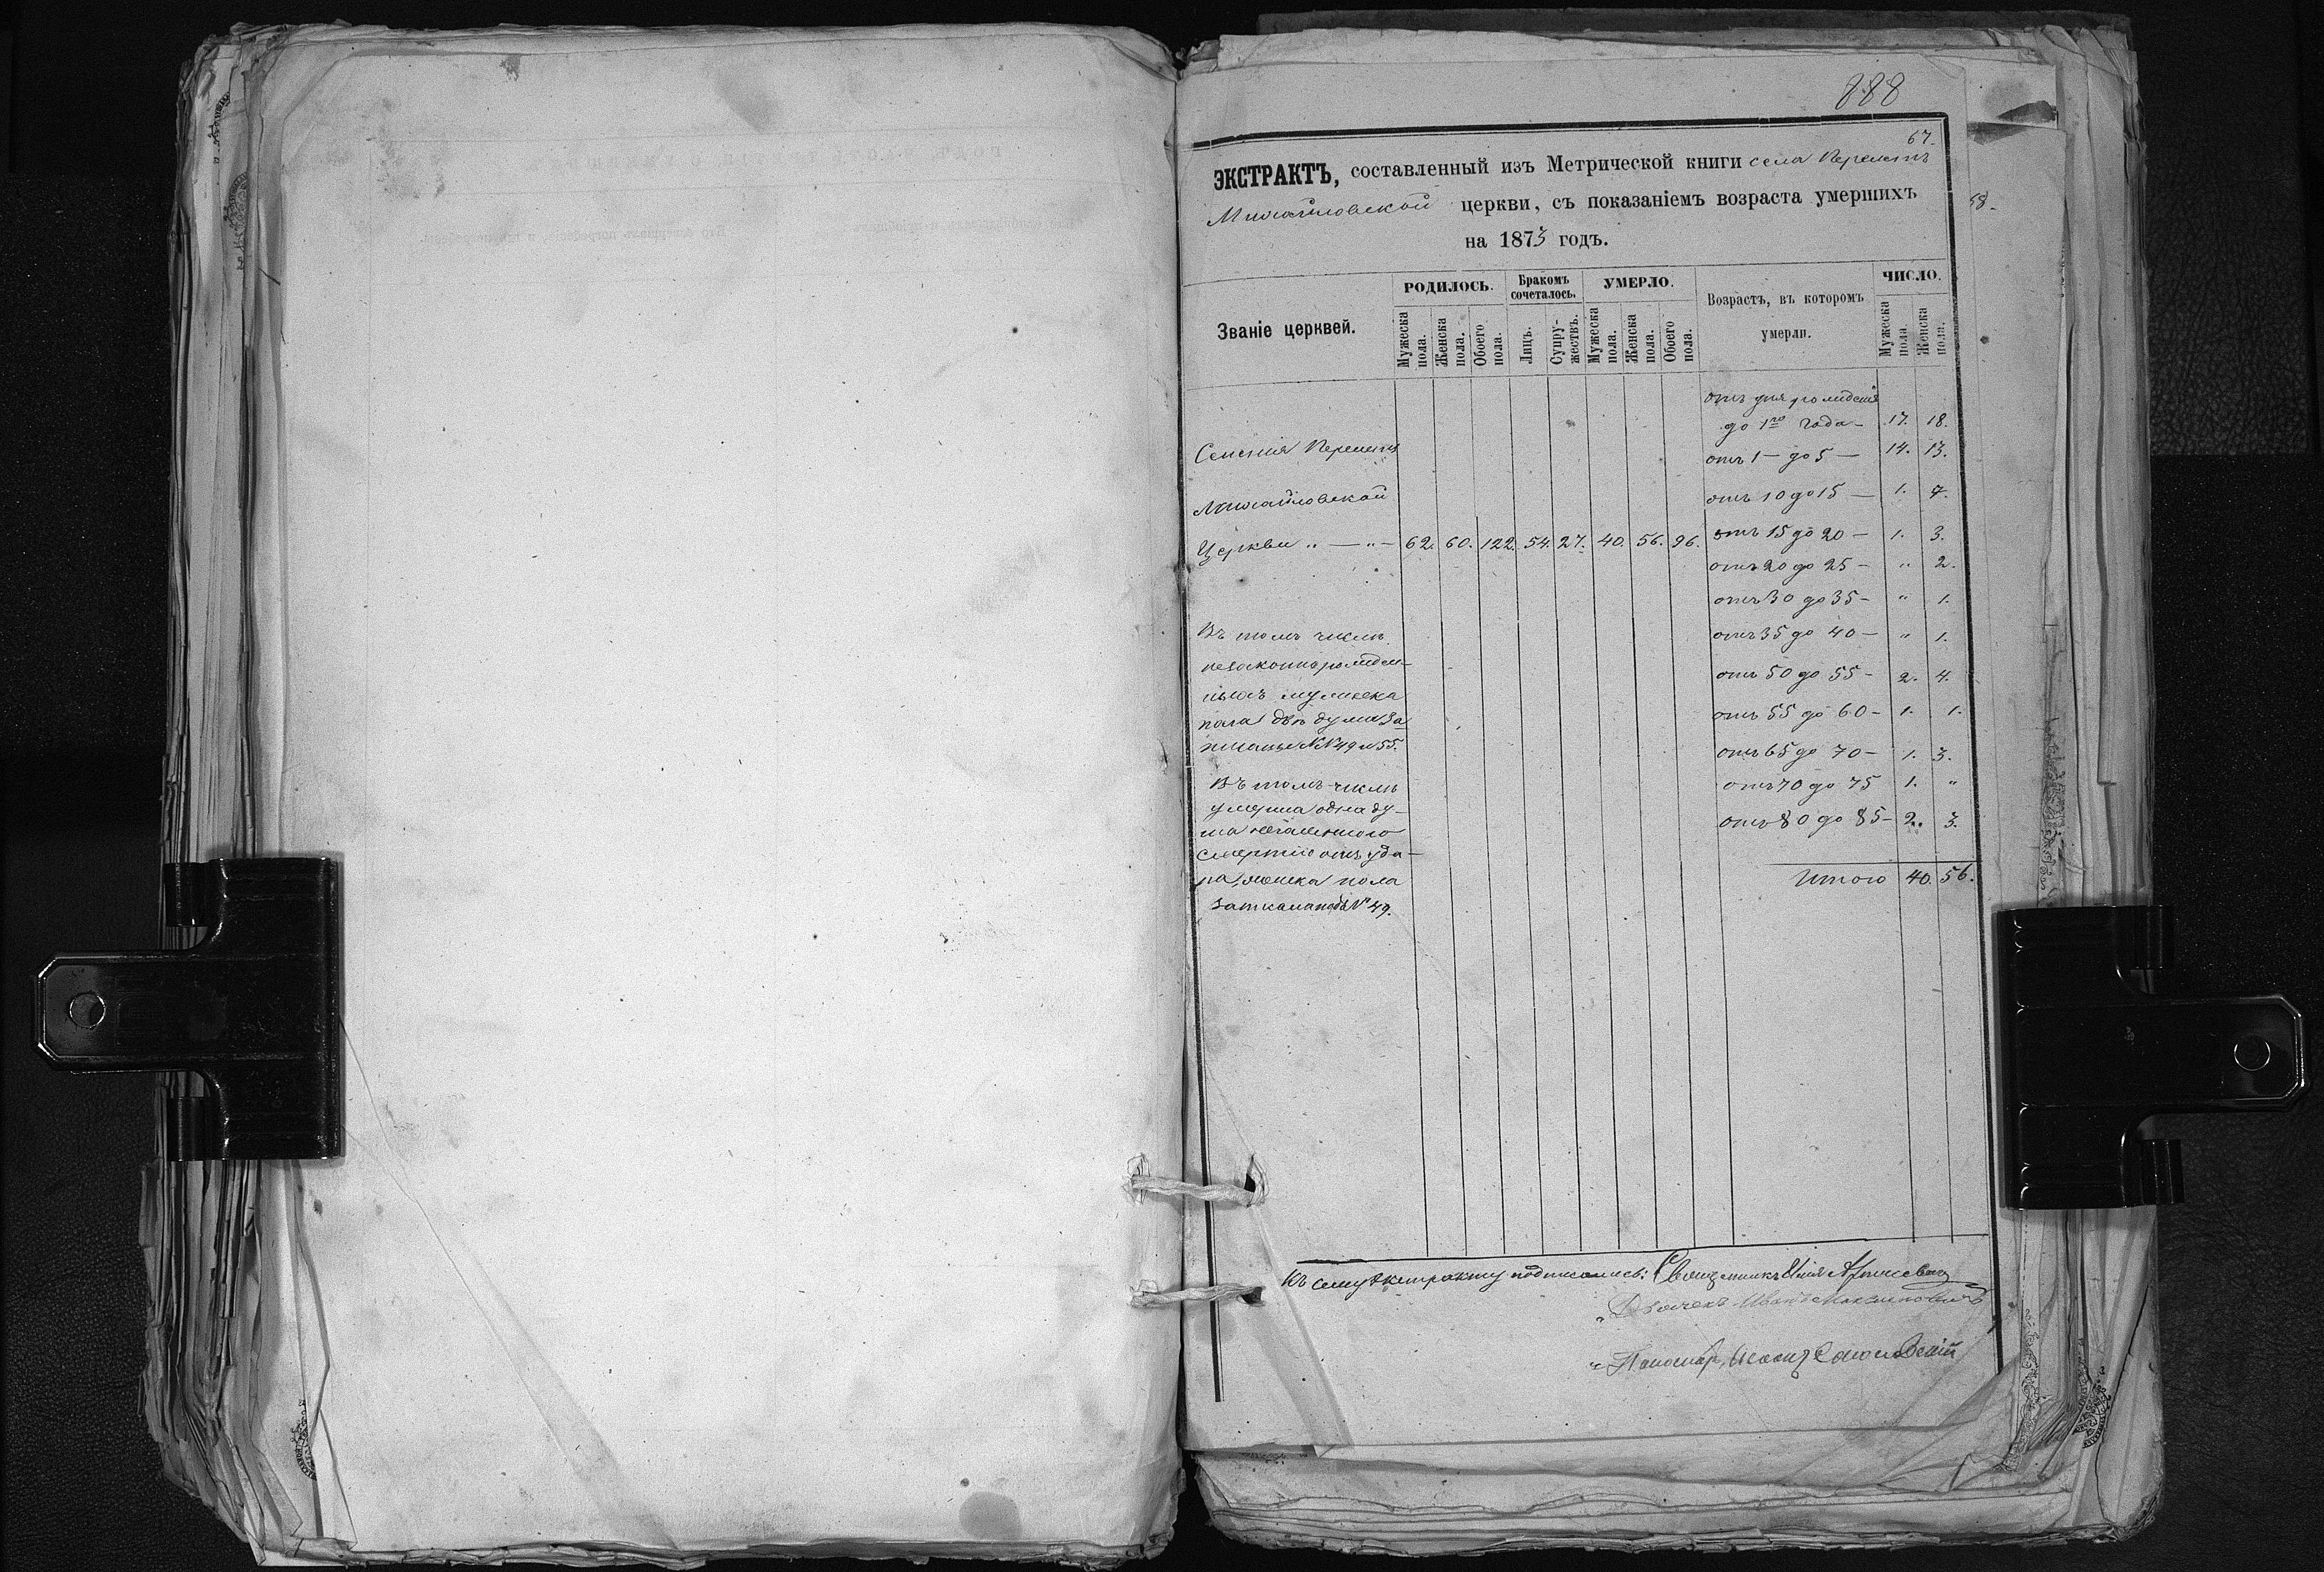 888
67.
ЭКСТРАКТЪ, составленный изъ Метрической книги села
Михайловской церкви, съ показаніемъ возраста умершихъ
на 1873 годъ.
58.
Званіе церквей.
РОДИЛОСЬ.
Мужеска пола.
Женска пола.
Обоего пола.
Бракомъ сочеталось.
Лицъ.
Супружествъ.
УМЕРЛО.
Мужеска пола.
Женска пола.
Обоего пола.
Возрастъ, въ которомъ умерли.
ЧИСЛО.
Мужеска пола
Женска пола.
Михайловской
Церкви „ — „ — 62. 60. 122. 54. 27. 40. 56. 96.
Въ томъ числѣ
незаконнорожден-
ныхъ мужеска
пола двѣ души за
№№ 49 и 55.
Въ томъ числѣ
умерла одна ду-
ша
смертію отъ уда-
ра, женска пола
№ 49.
отъ дня рожденія
до 1го года — 17. 18.
отъ 1 — до 5 — 14. 13.
отъ 10 до 15 — 1. 7.
отъ 15 до 20 — 1. 3.
отъ 20 до 25 — „ 2.
отъ 30 до 35 — „ 1.
отъ 35 до 40 — „ 1.
отъ 50 до 55 — 2. 4.
отъ 55 до 60 — 1. 1.
отъ 65 до 70 — 1. 3.
отъ 70 до 75 1. „
отъ 80 до 85 — 2. 3.
Итого 40. 56.
Къ сему Экстракту подписались: Священникъ
Дьячекъ Иванъ
Пономарь